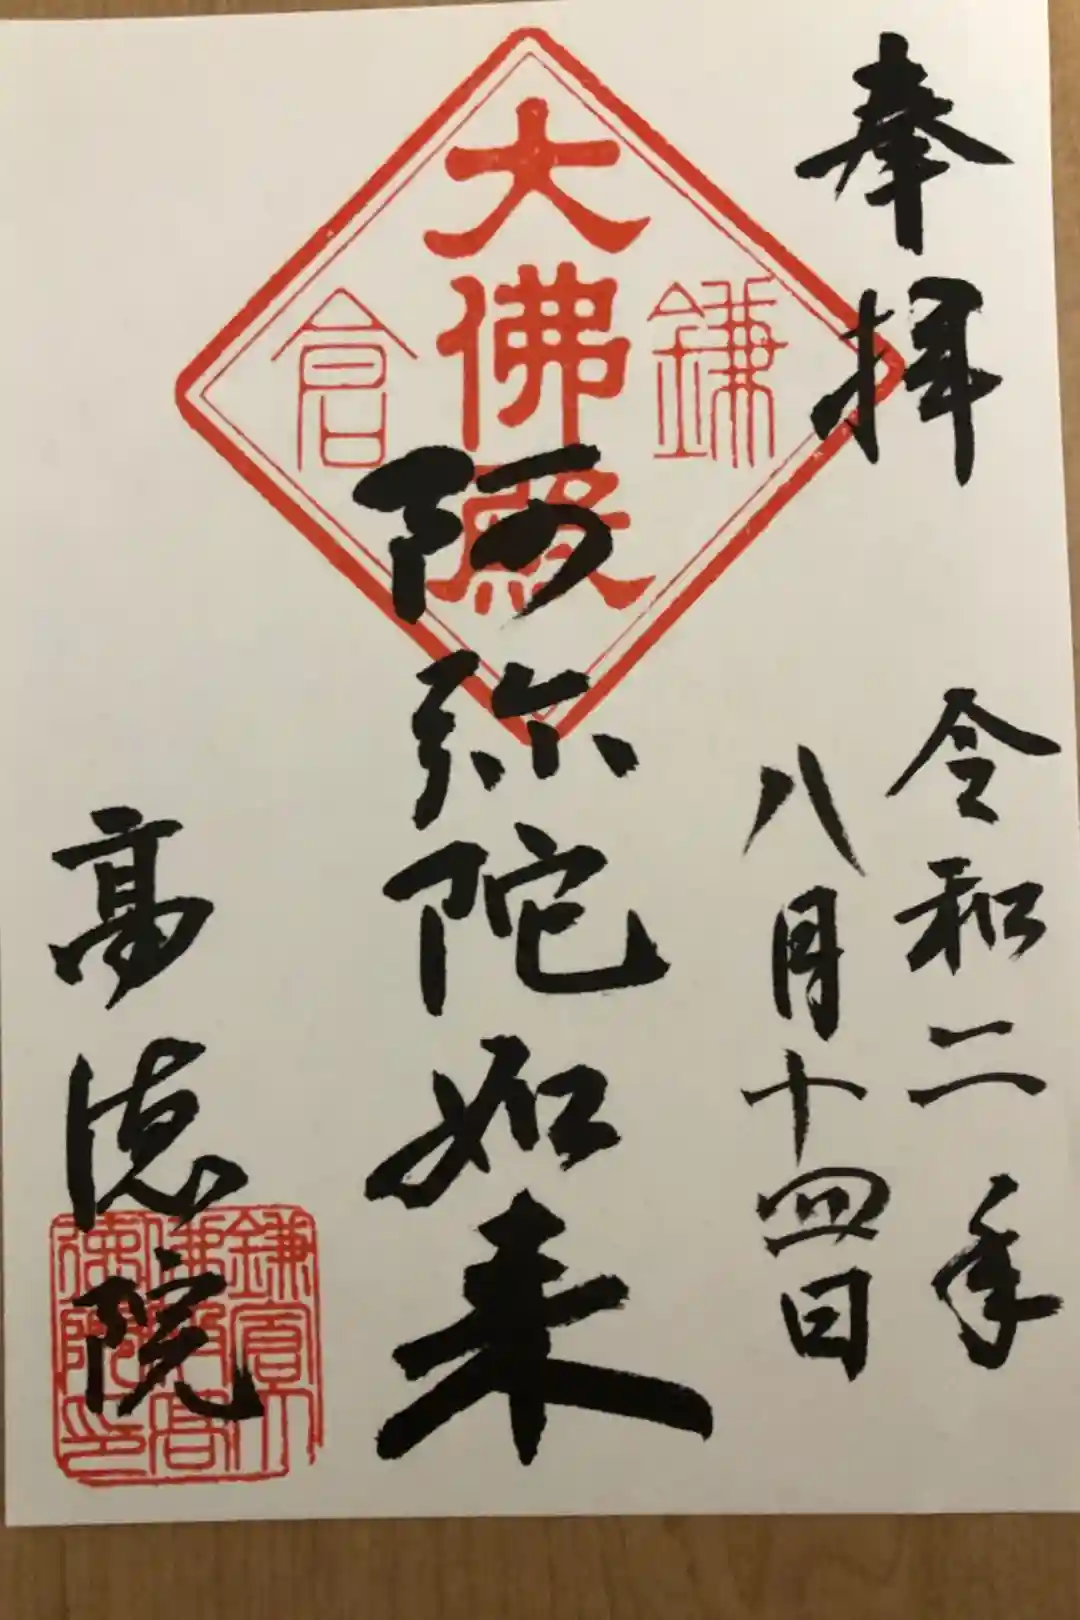 奉拝
令和二年
八月十四日
大佛殿
鎌倉
阿弥陀如来
高徳院
鎌倉大
佛殿高
徳院印